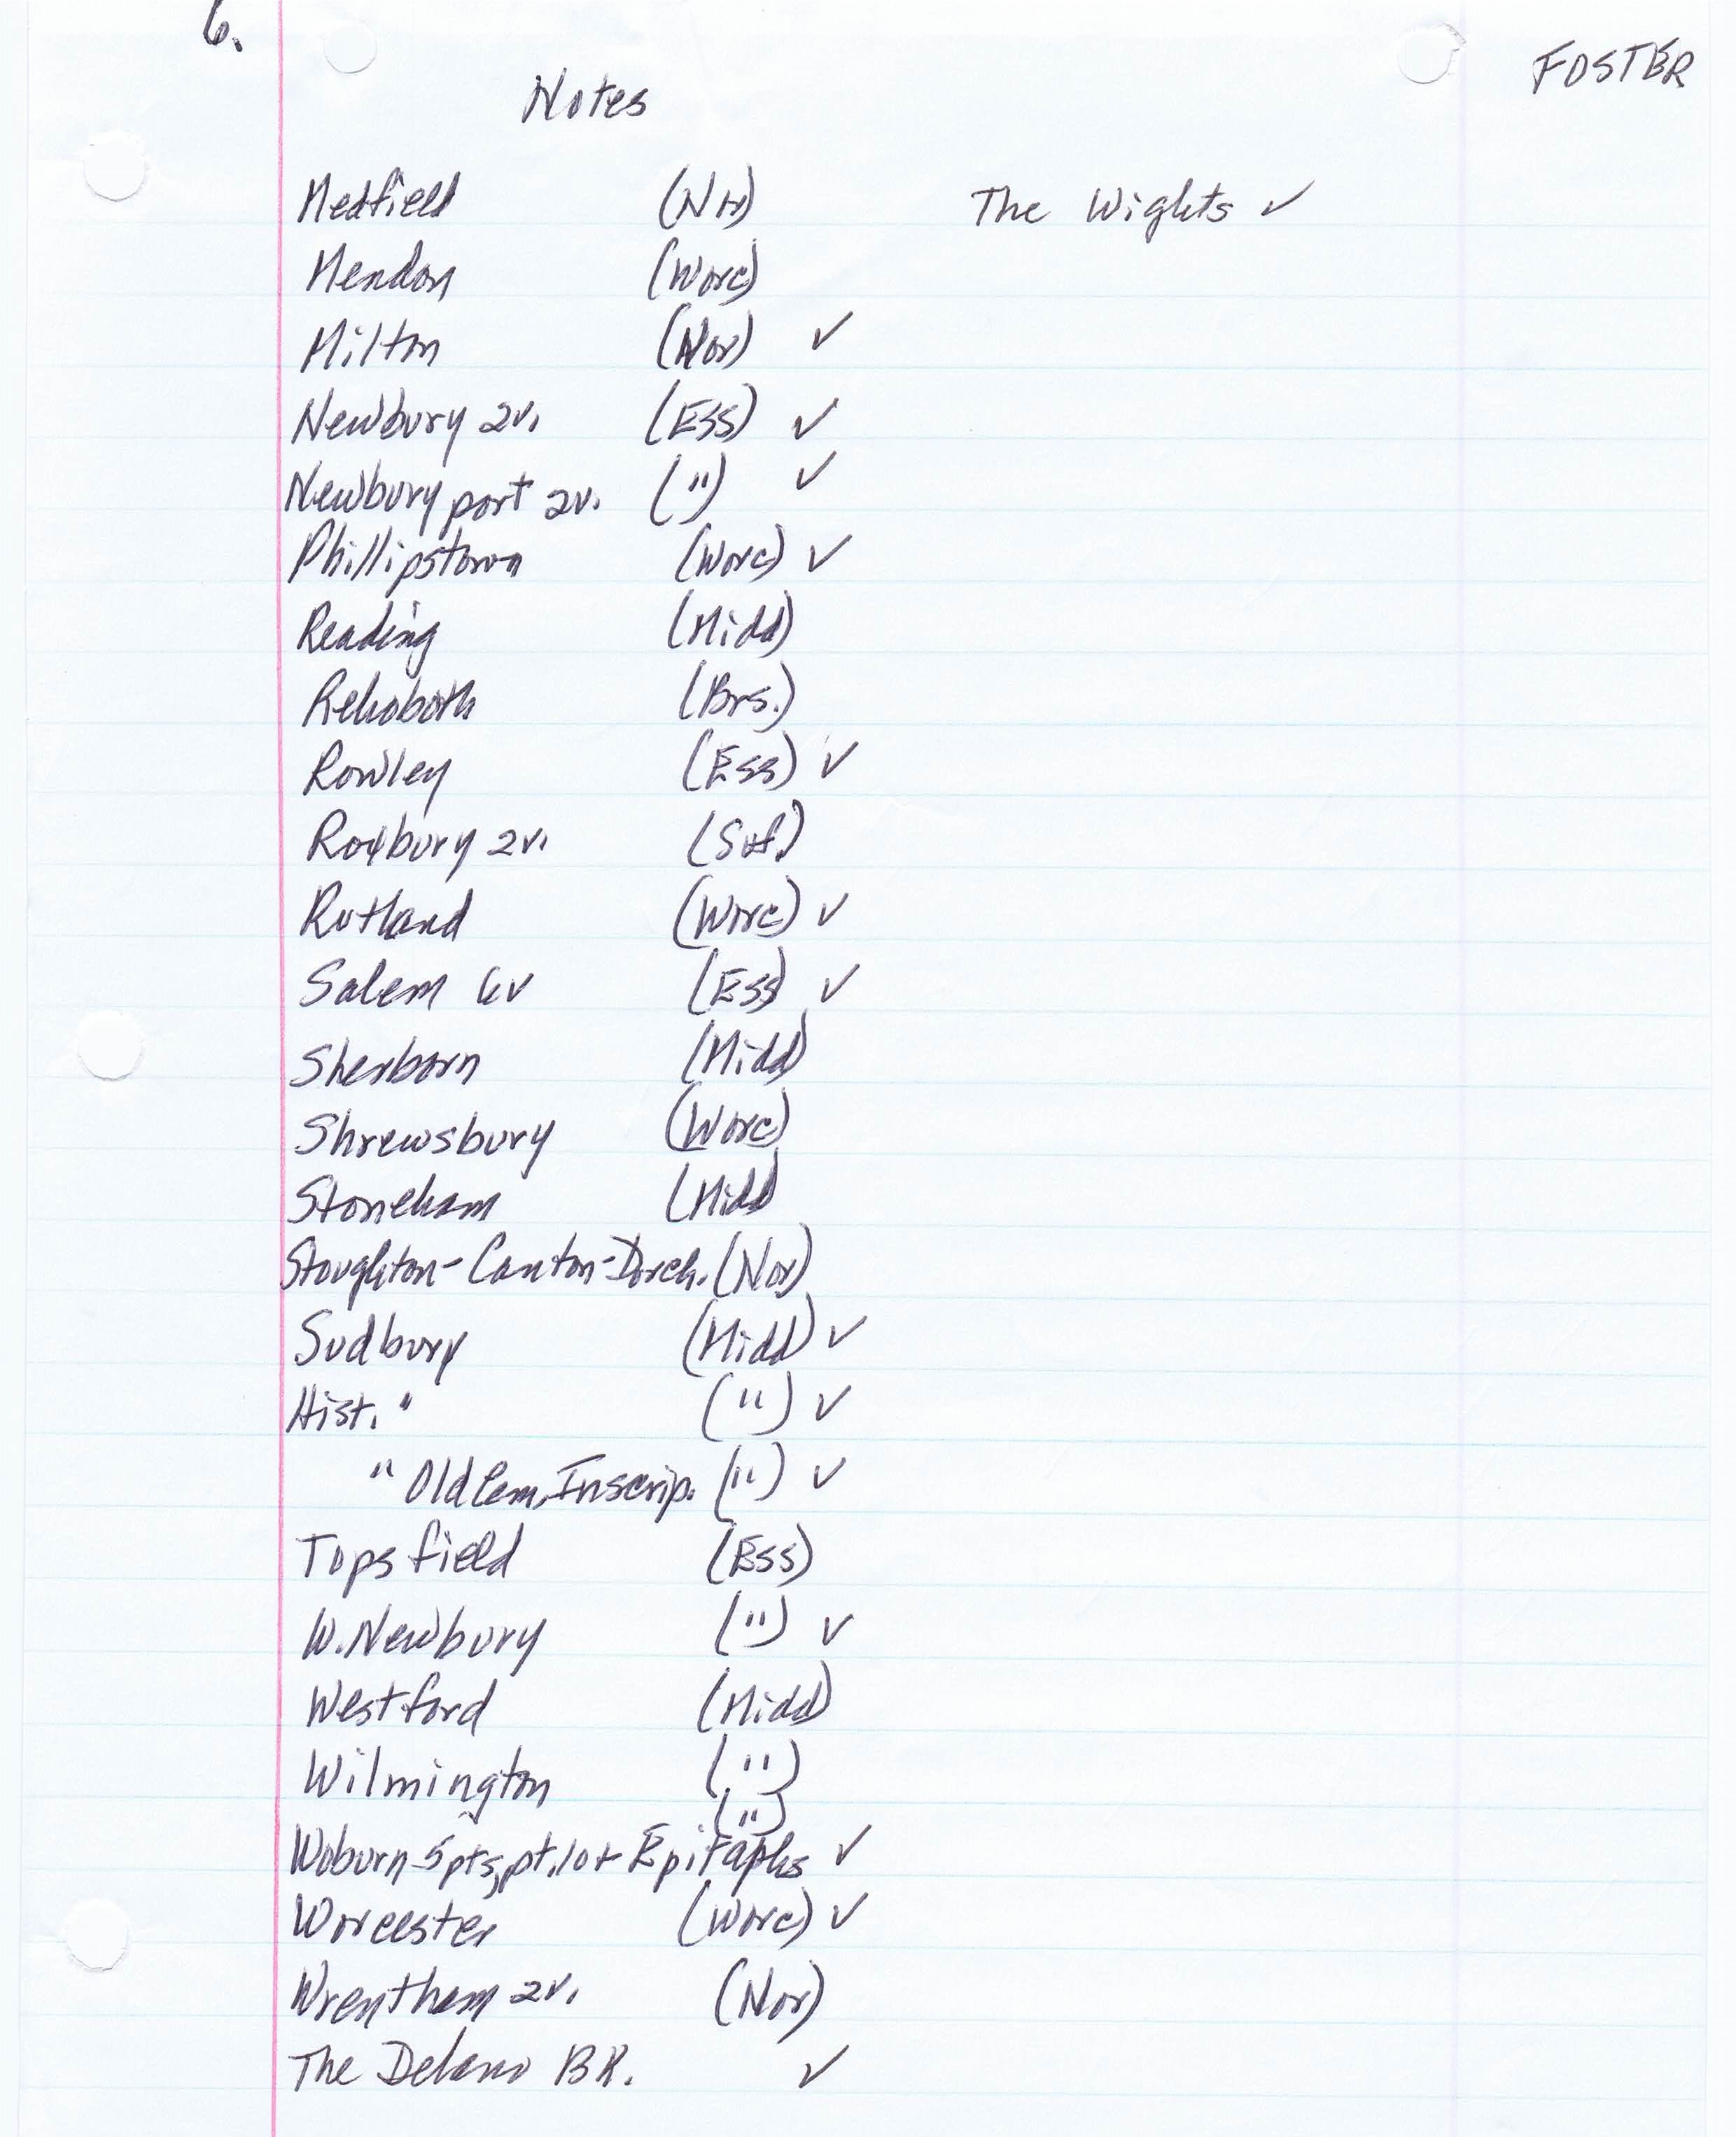 6.
FOSTER
Notes
Medfield (Nor) The Wights ✓
Mendon (Worc)
Milton (Nor) ✓
Newbury 2v. (Ess) ✓
Newburyport 2v. (") ✓
Phillipstown (Worc) ✓
Reading (Midd)
Rehoboth (Brs.)
Rowley (Ess) ✓
Roxbury 2v. (Suf)
Rutland (Worc) ✓
Salem 6v (Ess) ✓
Sherborn (Midd)
Shrewsbury (Worc)
Stoneham (Midd
Stoughton-Canton-Dorch. (Nor)
Sudbury (Midd) ✓
Hist. " (") ✓
" Old Cem. Inscrip. (") ✓
Topsfield (Ess)
W. Newbury (") ✓
Westford (Midd)
Wilmington (")
(")
Woburn-5pts, pt.10+ Epitaphs ✓
Worcester (Worc) ✓
Wrentham 2v. (Nor)
The Delano BK. ✓